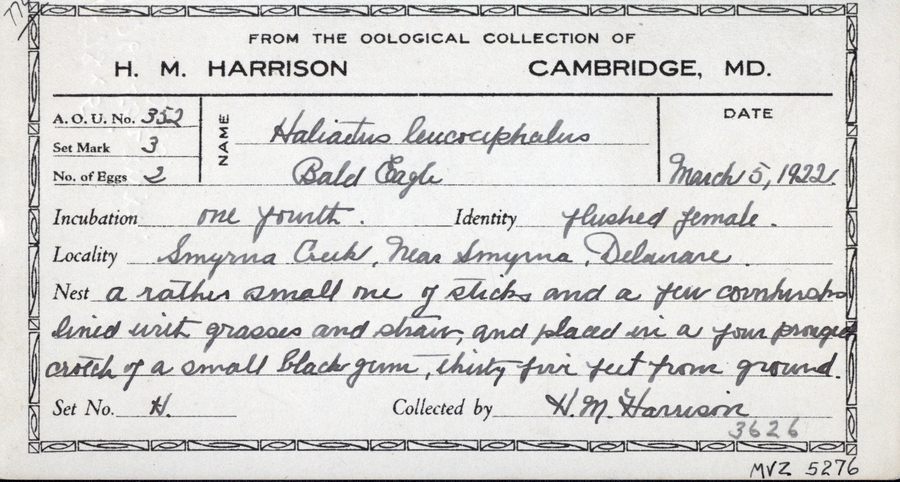 FROM THE OOLOGICAL COLLECTION OF
H. M. HARRISON CAMBRIDGE, MD.
A. O. U. No. 352
Set Mark 3
No. of Eggs 2
NAME Haliaetus leucocephalus
Bald Eagle
DATE
March 5, 1922.
Incubation one fourth. Identity flushed female.
Locality Smyrna Creek, Near Smyrna, Delaware.
Nest a rather small one of sticks and a few cornhusks
lined with grasses and straw, and placed in a four pronged
crotch of a small black gum, thirty five feet from ground.
Set No. H. Collected by H. M. Harrison
3626
MVZ 5276